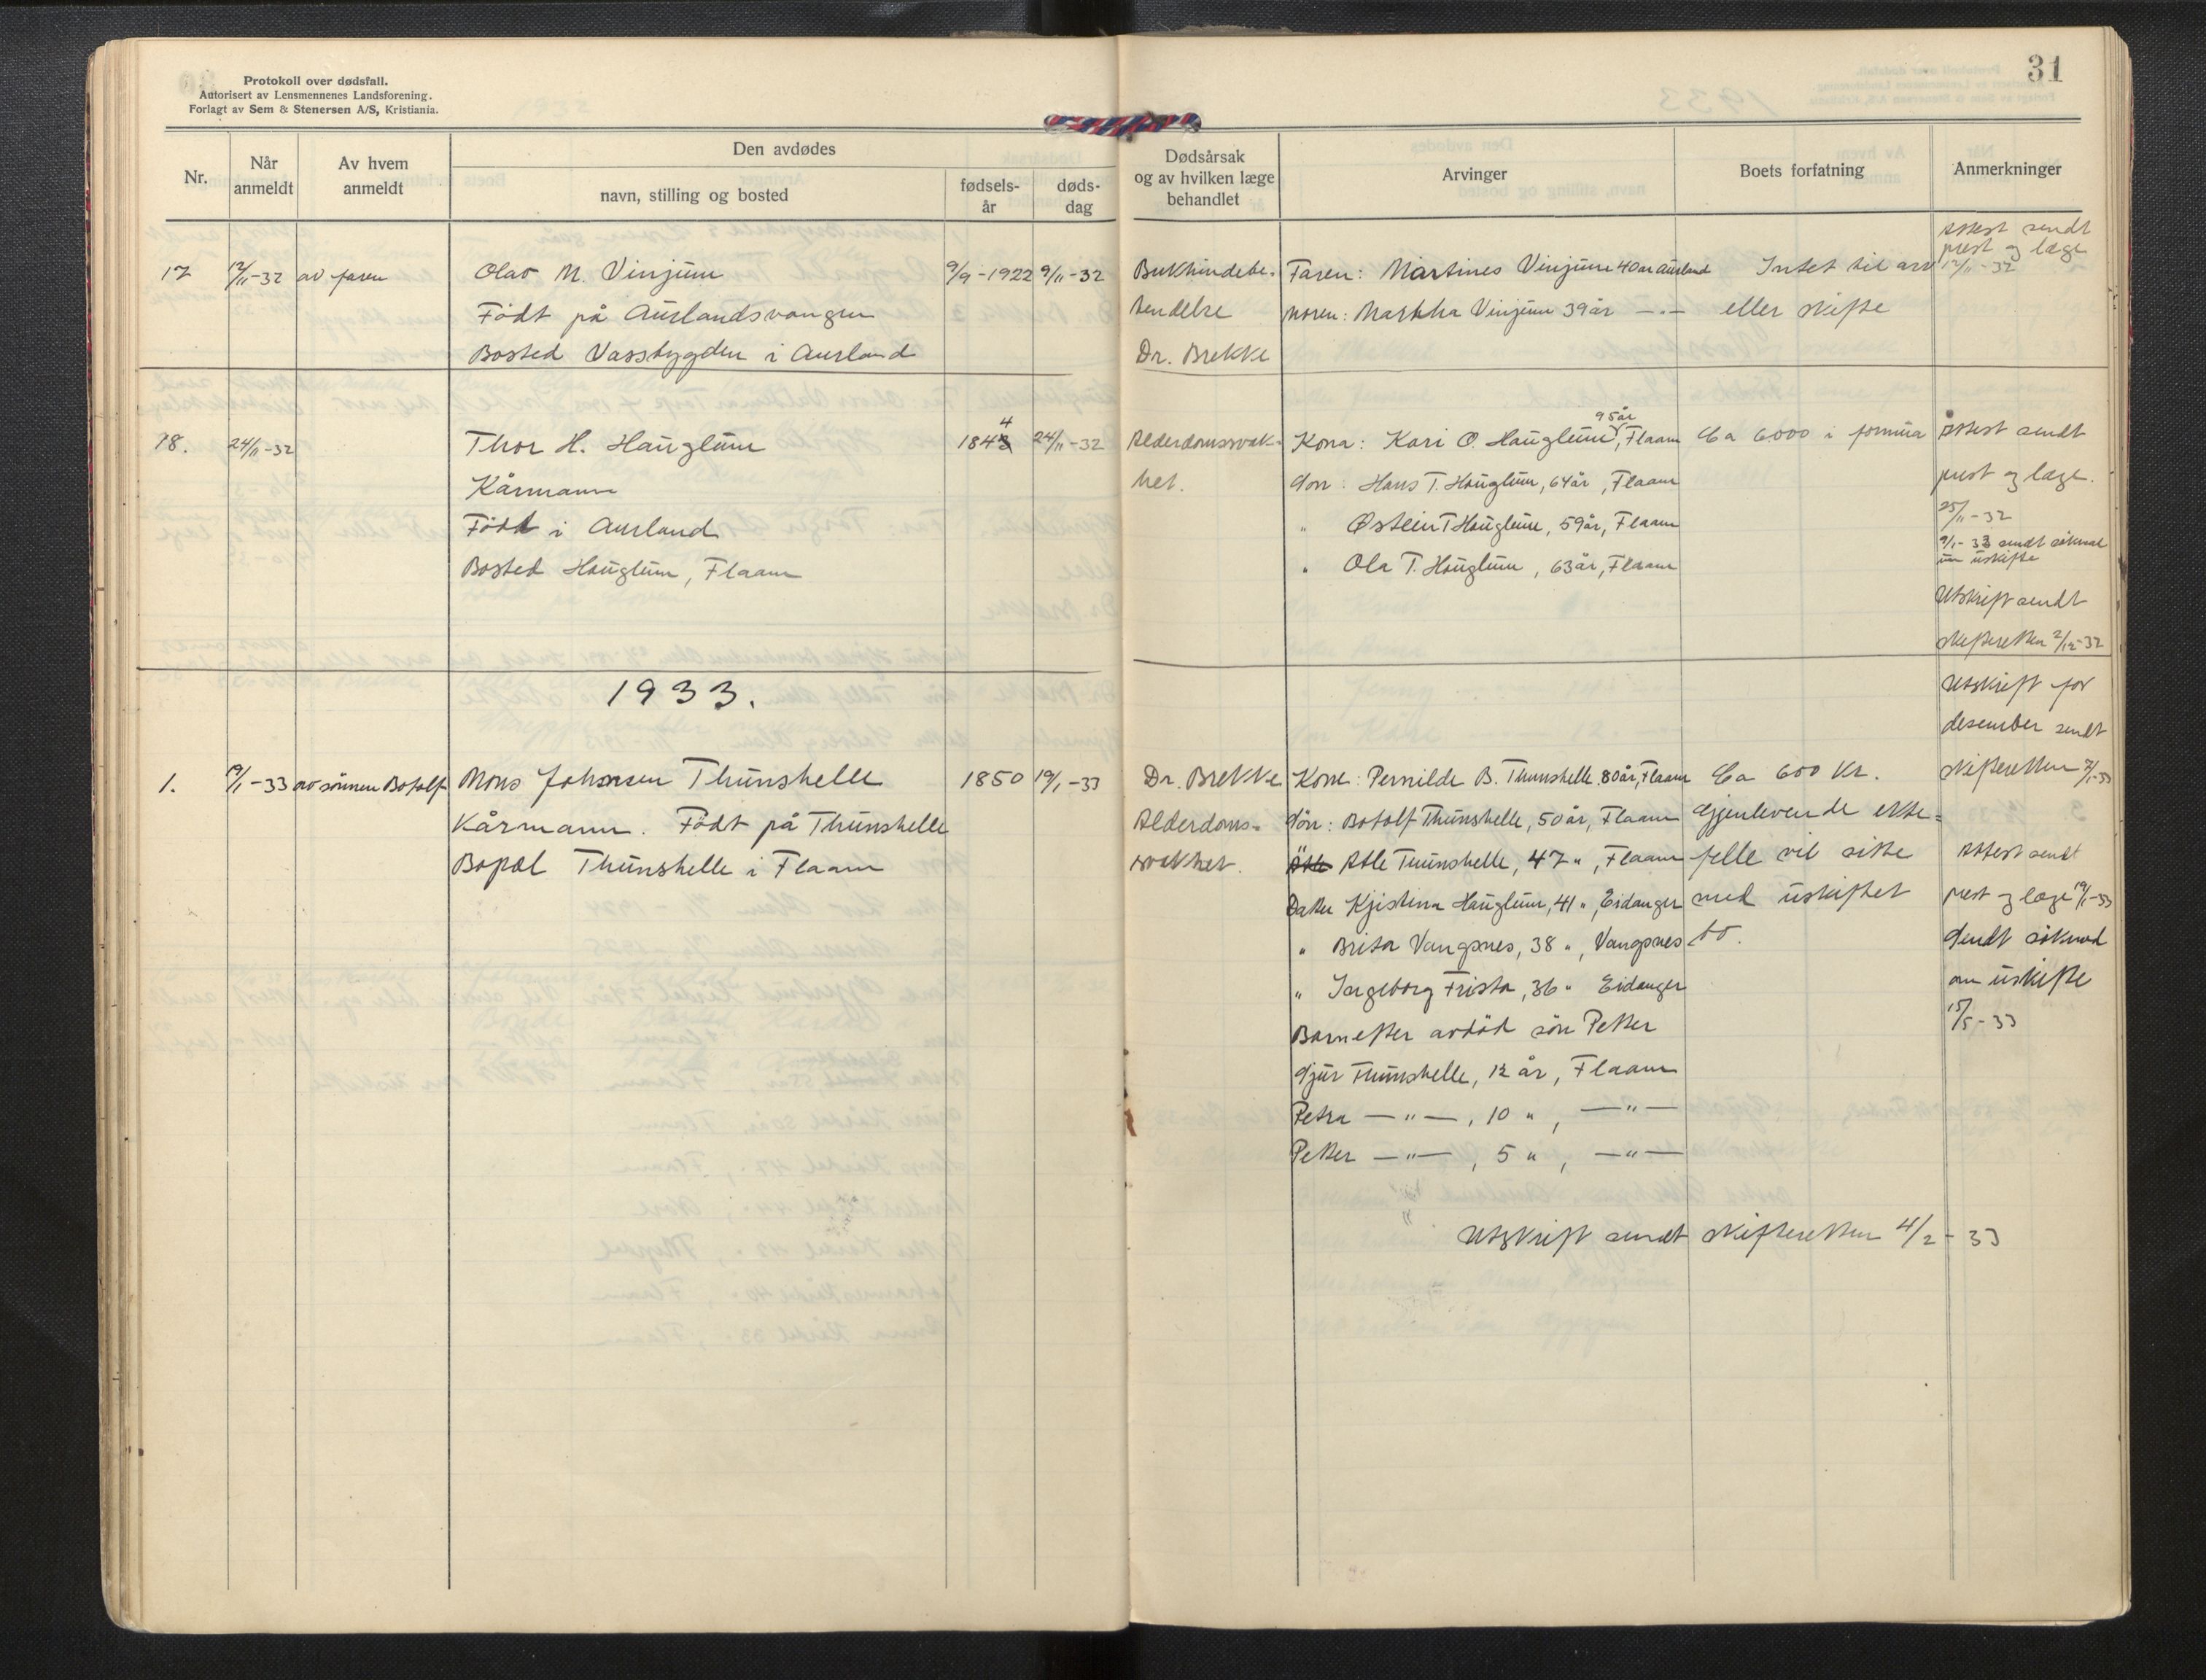 Protokoll over dødsfall.
Autorisert av Lensmennenes Landsforening.
Forlagt av Sem & Stenersen A/S, Kristiania.
31
Nr.
Når anmeldt
Av hvem anmeldt
Den avdødes
navn, stilling og bosted
fødsels-år
døds-dag
Dødsårsak og av hvilken læge behandlet
Arvinger
Boets forfatning
Anmerkninger
17 12/11-32 av faren Olav M. Vinjum 9/9-1922 9/11-32
Født på Aurlandsvangen
Bosted Vassbygden i Aurland
Bukhindebe-
tendelse
Dr. Brekke
Faren: Martines Vinjum 40 år Aurland
Moren: Martha Vinjum 39 år —„—
Intet til arv
eller skifte
Attest sendt
prest og læge
12/11-32
18. 24/11-32 Thor H. Hauglum 1844 24/11-32
Kårmann
Født i Aurland
Bosted Hauglum, Flaam
Alderdomssvak-
het.
95 år
Kona: Kari O. Hauglum, Flaam
Søn: Hans T. Hauglum, 64 år, Flaam
" Østein T Hauglum, 59 år, Flaam
" Ola T. Hauglum, 63 år, Flaam
Ca 6000 i formua
Attest sendt
prest og læge.
25/11-32
9/1-33 sendt søknad
um uskifte
Utskrift sendt
skifteretten 2/12-32
1933.
Utskrift for
desember sendt
skifteretten 2/1-33
1. 19/1-33 av sønnen Botolf Mons Johnsen Thunshelle 1850 19/1-33
Kårmann. Født på Thunshelle
Bopæl Thunshelle i Flaam
Dr. Brekke
Alderdoms-
svakhet.
Kone: Pernilde B. Thunshelle 80 år, Flaam
Søn: Botolf Thunshelle, 50 år, Flaam
Atle Thunshelle, 47 ", Flaam
Datter Kjistina Hauglum, 41 ", Eidanger
" Brita Vangsnes, 38 ", Vangsnes
" Ingeborg Frista, 36 " Eidanger
Barn efter avdød søn Petter
Sjur Thunshelle, 12 år, Flaam
Petra —"—, 10 ", —"—
Petter —"—, 5 ", —"—
Ca 600 Kr.
Gjenlevende ekte-
felle vil sitte
med uskiftet
bo.
Attest sendt
prest og læge 19/1-33
Sendt søknad
om uskifte
15/5-33
Utskrift sendt skifteretten 4/2-33